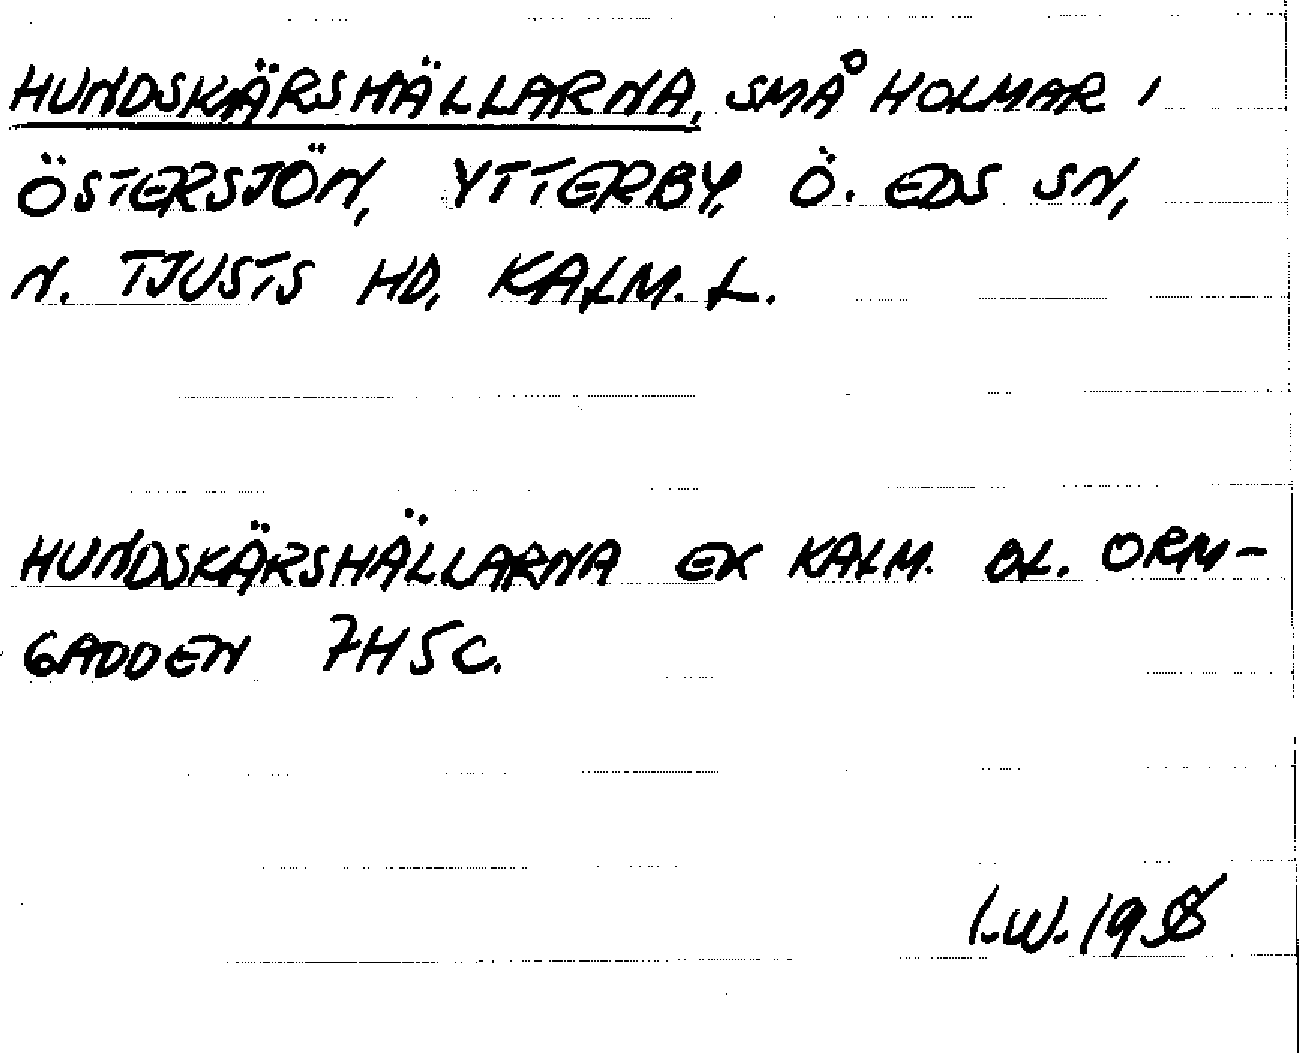 HUNDSKÄRSHÄLLARNA, SMÅ HOLMAR I
ÖSTERSJÖN, YTTERBY, Ö. EDS SN,
N. TJUSTS HD, KALM. L.
HUNDSKÄRSHÄLLARNA EK KALM. BL. ORM-
GADDEN 7H5C.
I.W. 1958